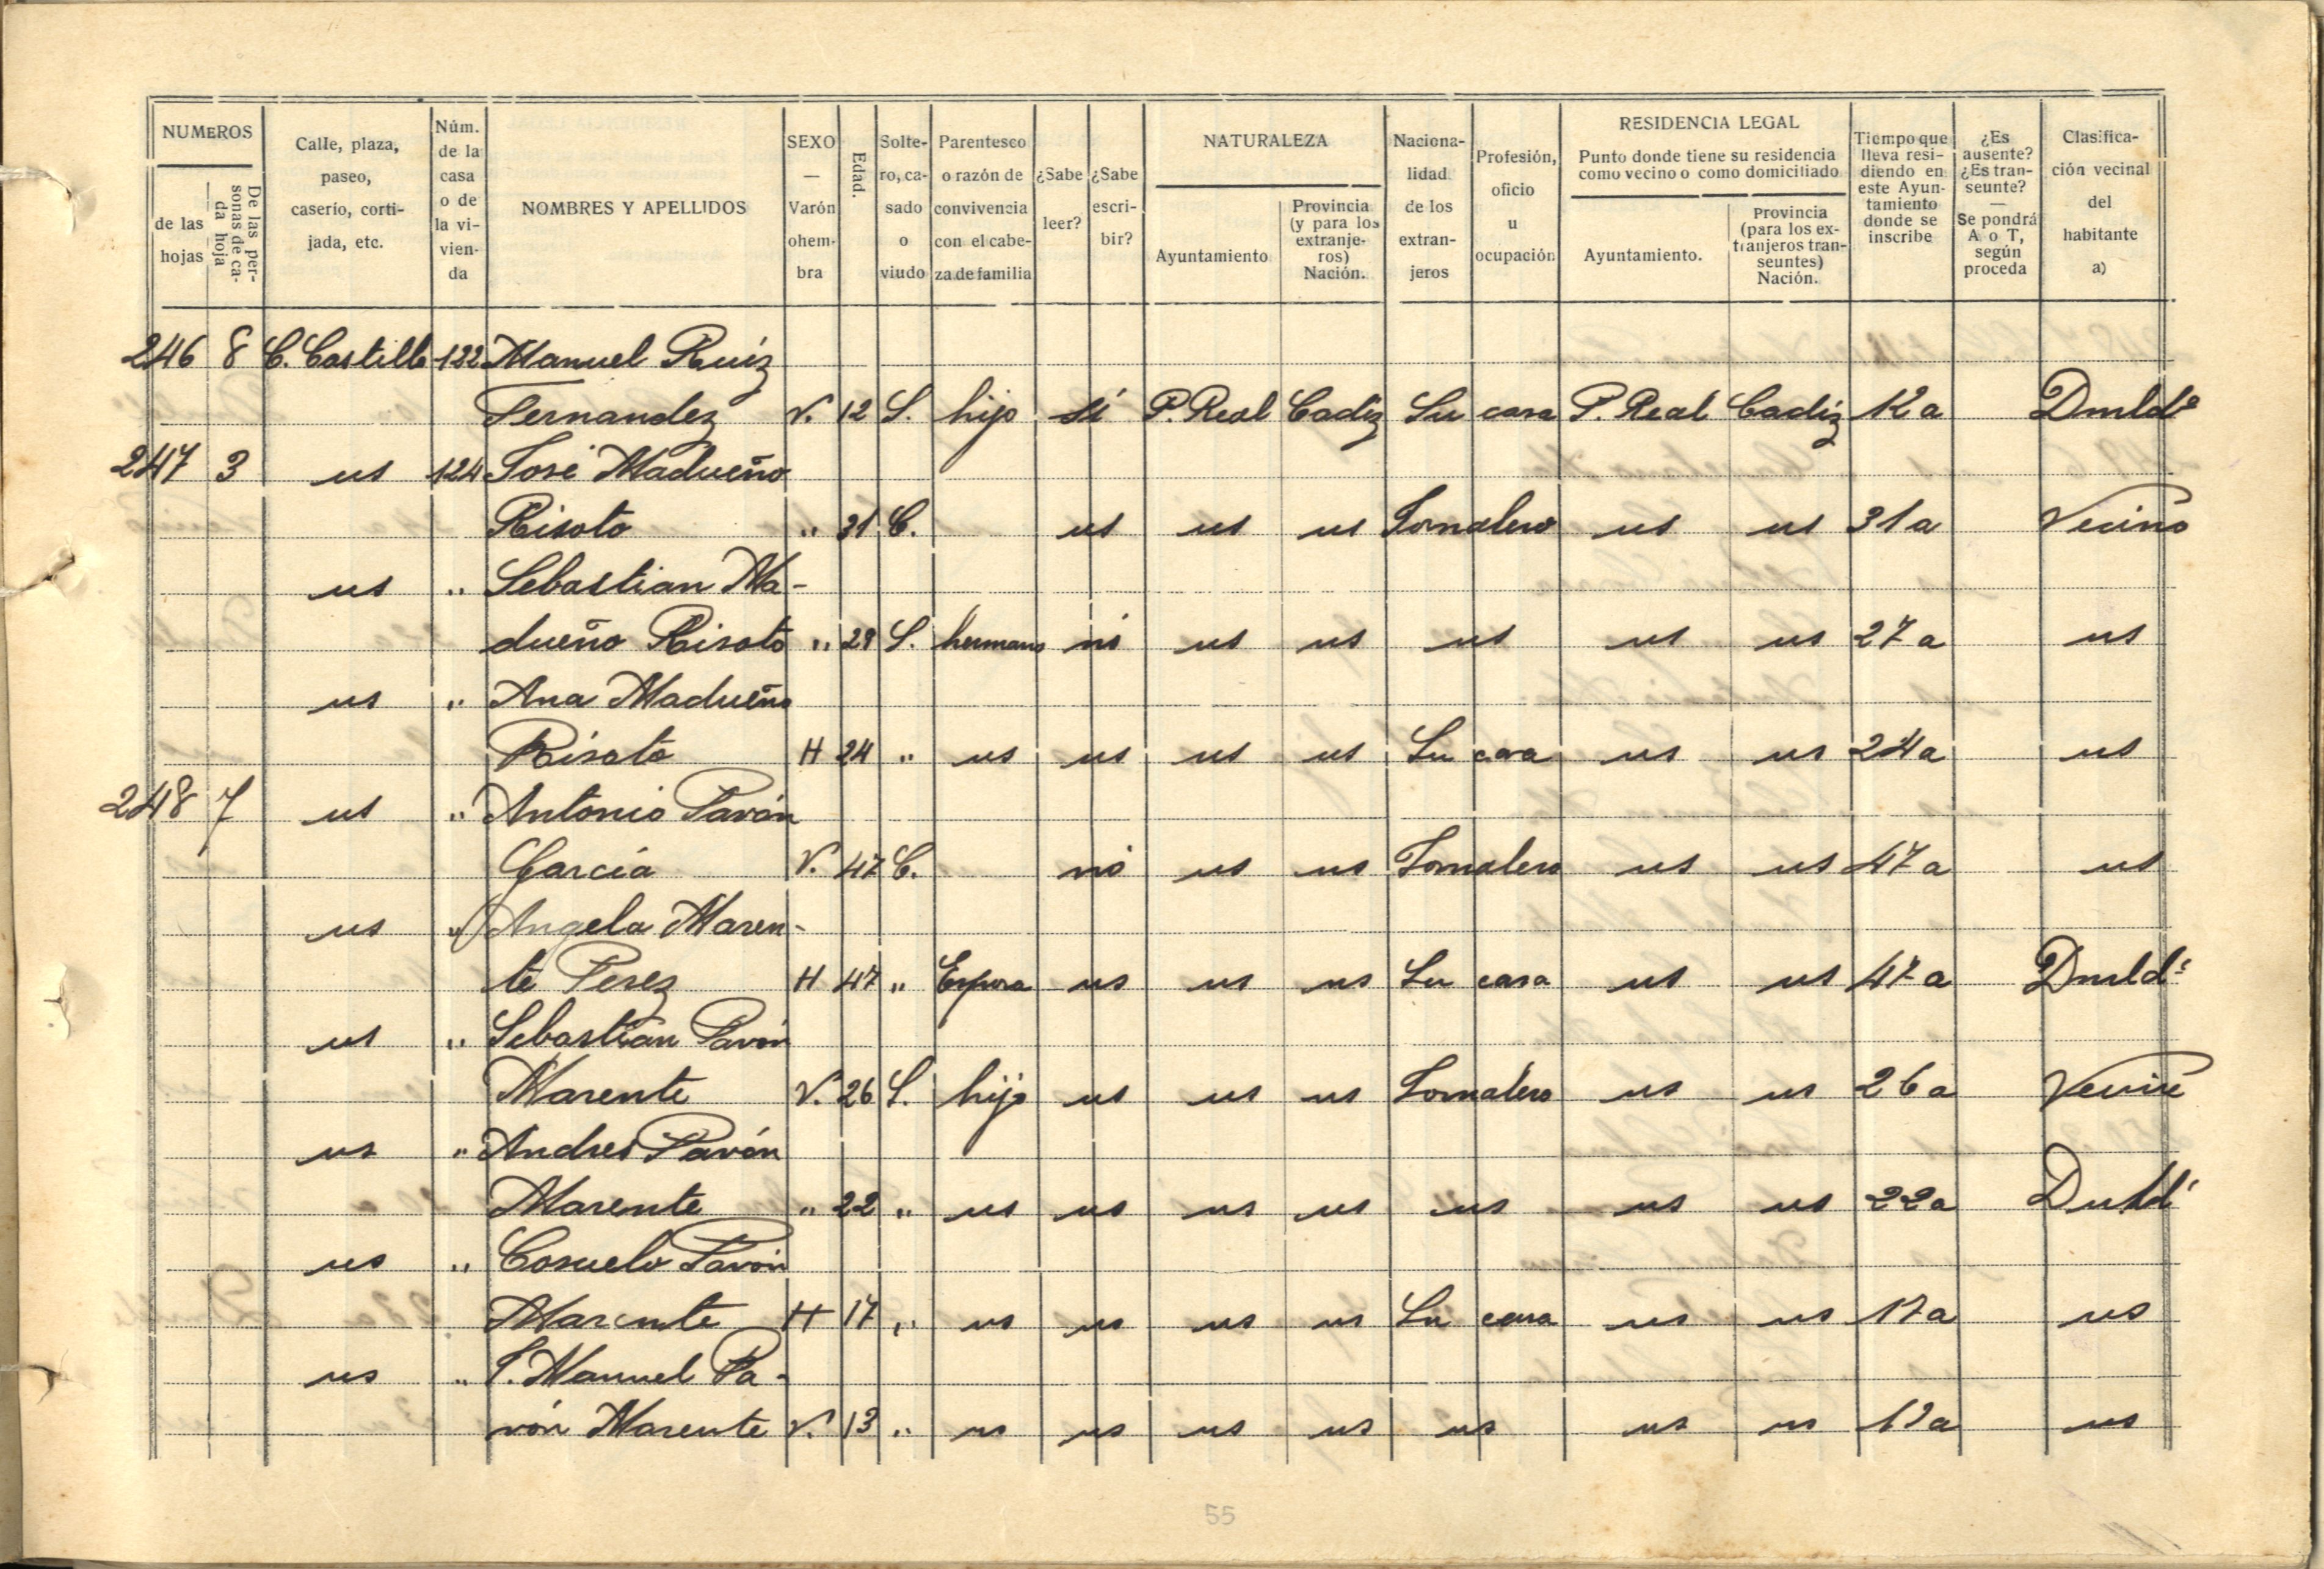 NUMEROS
de las hojas
De las personas de cada hoja
Calle, plaza, paseo, caserío, cortijada, etc.
Núm. de la casa o de la vivienda
NOMBRES Y APELLIDOS
SEXO — Varón ohembra
Edad.
Soltero, casado o viudo
Parentesco o razón de convivencia con el cabeza de familia
¿Sabe leer?
¿Sabe escribir?
NATURALEZA
Ayuntamiento
Provincia (y para los extranjeros) Nación.
Nacionalidad de los extranjeros
Profesión, oficio u ocupación
RESIDENCIA LEGAL
Punto donde tiene su residencia como vecino o como domiciliado
Ayuntamiento.
Provincia (para los extranjeros transeuntes) Nación.
Tiempo que lleva residiendo en este Ayuntamiento donde se inscribe
¿Es ausente? ¿Es transeunte? — Se pondrá A o T, según proceda
Clasificación vecinal del habitante a)
246 8 C. Castillo 122 Manuel Ruíz
Fernandez V. 12 S. hijo sí P. Real Cadiz Su casa P. Real Cadiz 12 a Dmldº
247 3 us 124 José Madueño
Risoto " 31 C. us us us Jornalero us us 31 a Vecino
us " Sebastian Ma-
dueño Risoto " 29 S. hermano nó us us us us us 27 a us
us " Ana Madueño
Risoto H 24 " us us us us Su casa us us 24 a us
248 7 us " Antonio Pavón
García V. 47 C. nó us us Jornalero us us 47 a us
us " Angela Maren-
te Perez H 47 " Esposa us us us Su casa us us 47 a Dmldº
us " Sebastián Pavón
Marente V. 26 S. hijo us us us Jornalero us us 26 a Vecino
us " Andres Pavón
Marente " 22 " us us us us us us us 22 a Dmldº
us " Cosuelo Pavón
Marente H 17 " us us us us Su casa us us 17 a us
us " J. Manuel Pa-
vón Marente V. 13 " us us us us us us us 12 a us
55